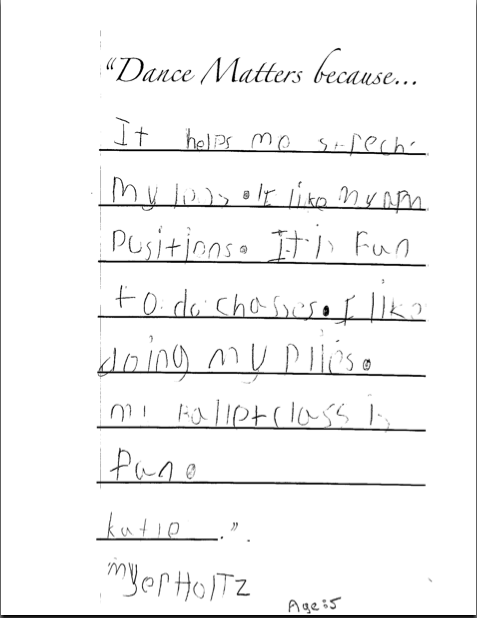 “Dance Matters because...
It helps me strech
My legs. I like My arm
Positions. It is Fun
to do chasses. I like
doing my Plies.
mi Ballet class is
fun.
katie.”.
myerHolTz
Age: 5